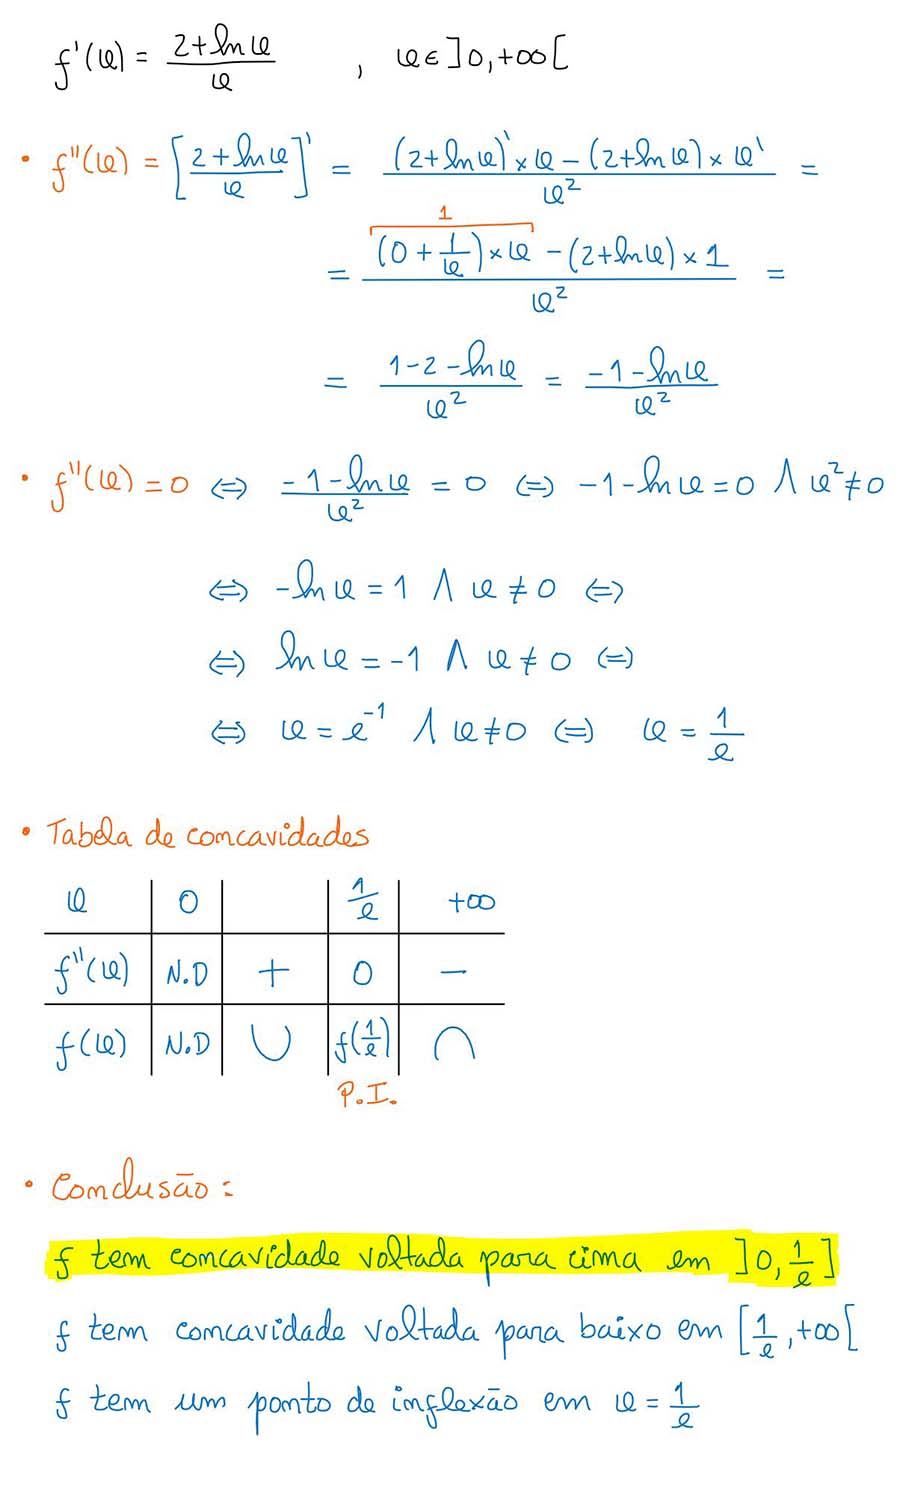 f'(x) = (2+ln x)/x , x∈]0,+∞[
• f''(x) = [(2+ln x)/x]' = ((2+ln x)'×x − (2+ln x)×x')/x² =
1
= ((0+1/x)×x − (2+ln x)×1)/x² =
= (1−2−ln x)/x² = (−1−ln x)/x²
• f''(x)=0 ⇔ (−1−ln x)/x² = 0 ⇔ −1−ln x=0 ∧ x²≠0
⇔ −ln x = 1 ∧ x ≠ 0 ⇔
⇔ ln x = −1 ∧ x ≠ 0 ⇔
⇔ x = e⁻¹ ∧ x≠0 ⇔ x = 1/e
• Tabela de concavidades
x 0 1/e +∞
f''(x) N.D + 0 −
f(x) N.D ∪ f(1/e) ∩
P.I.
• Conclusão:
f tem concavidade voltada para cima em ]0,1/e]
f tem concavidade voltada para baixo em [1/e,+∞[
f tem um ponto de inflexão em x = 1/e